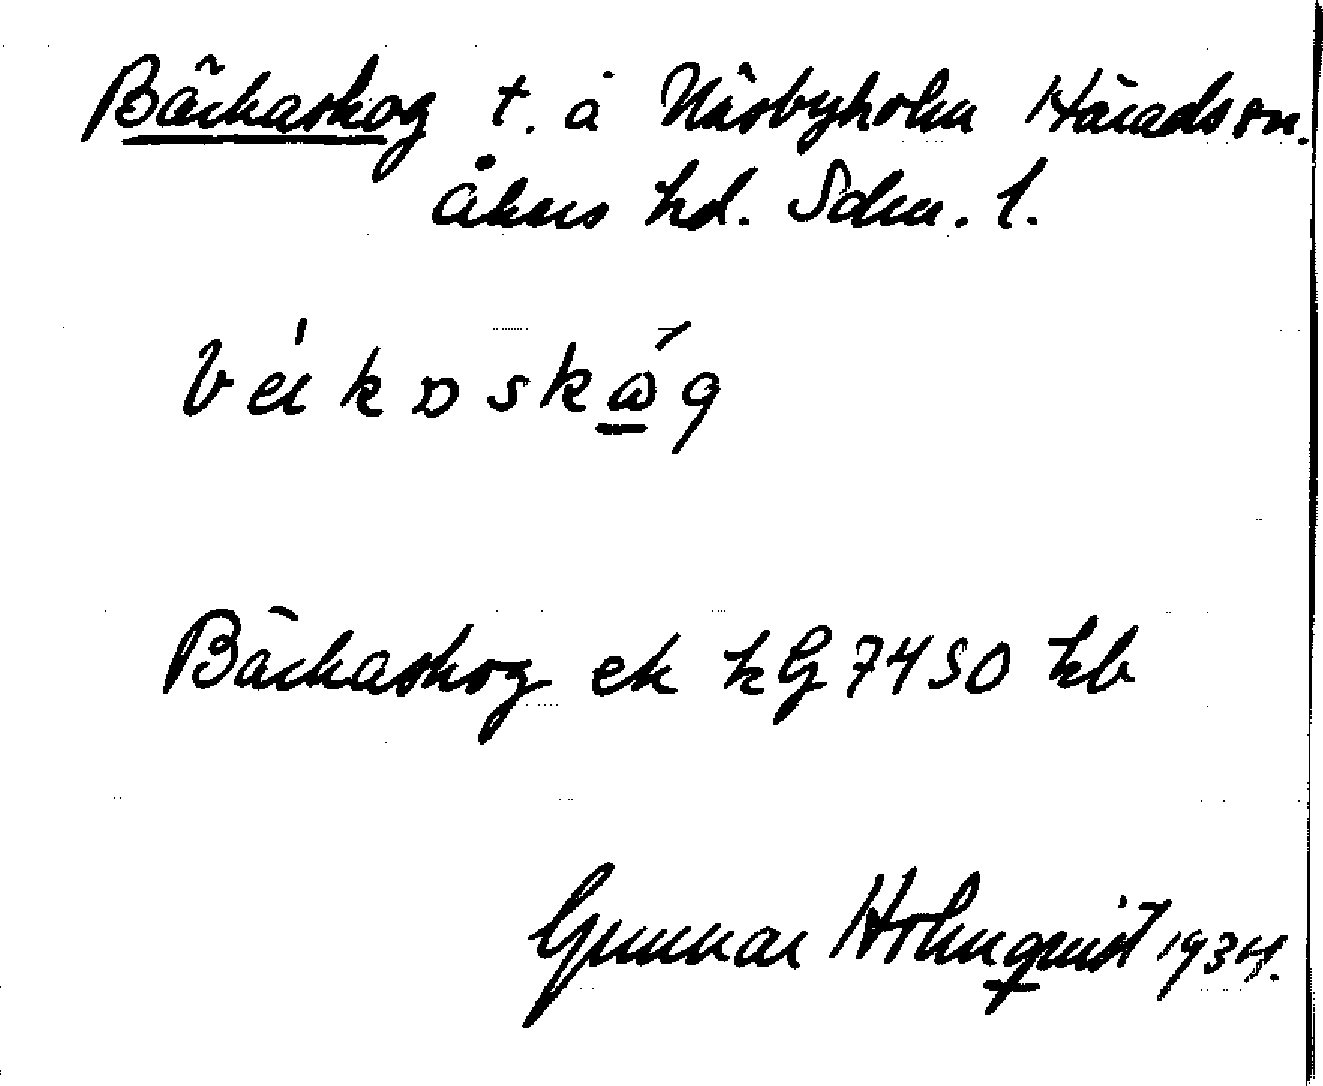 Bäckaskog t. å Näsbyholm Härads sn.
Åkers hd. Sdm. l.
Bäckaskog ek kG 7450 hb
Gunnar Holmquist 1934.